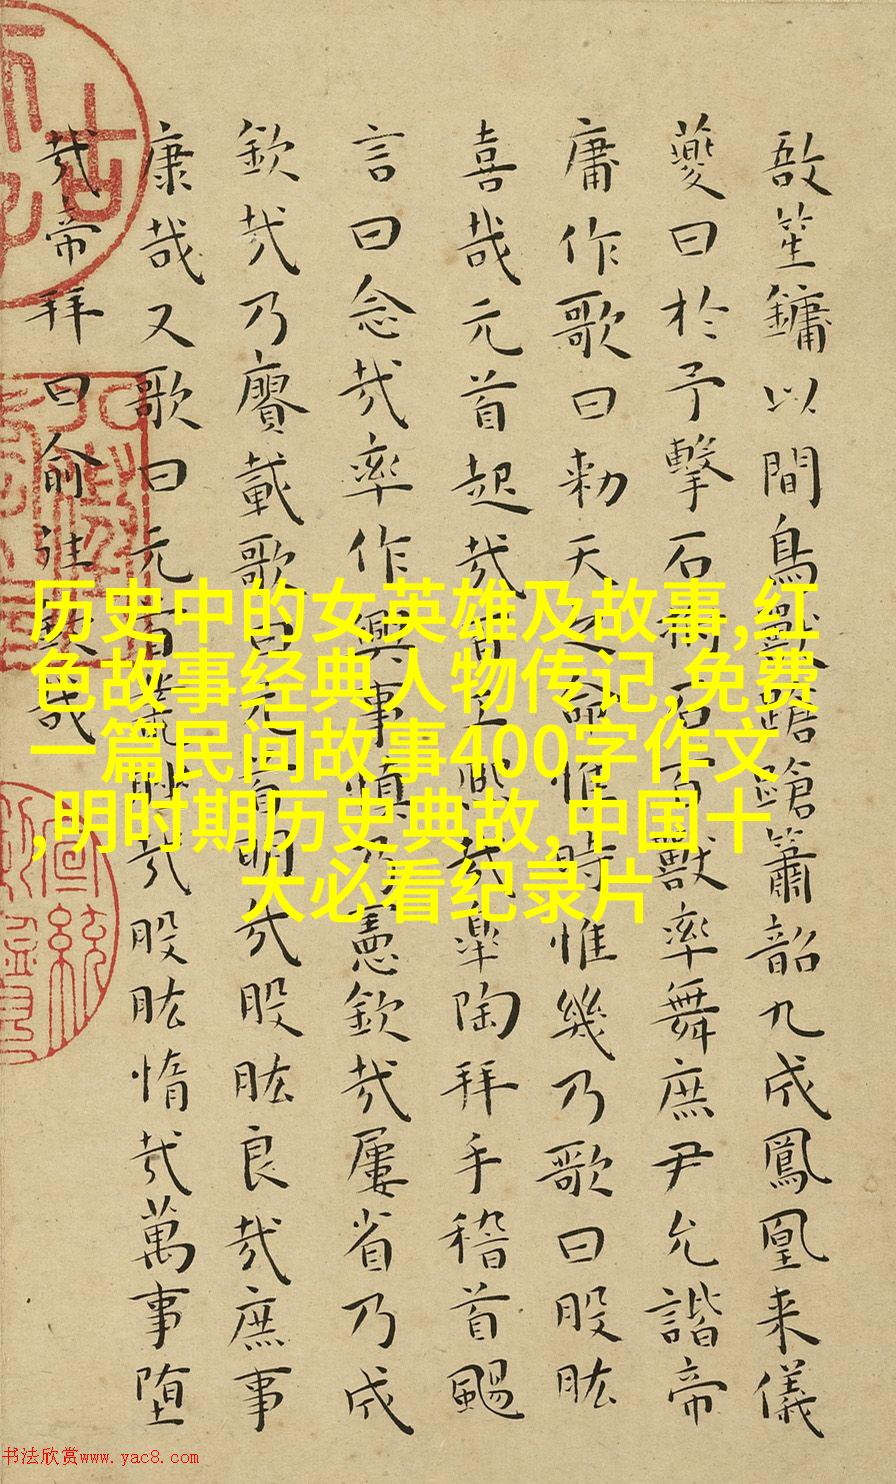 敔笙鏞以間鳥獸蹌蹌簫韶九成鳳凰来儀
夔曰於予擊石拊石百獸率舞庶尹允諧帝
庸作歌曰勑天之命惟時惟幾乃歌曰股肱
喜哉元首起哉百工熙哉皋陶拜手稽首颺
言曰念哉率作興事慎乃憲欽哉屢省乃成
欽哉乃賡載歌曰元首明哉股肱良哉庶事
康哉又歌曰元首叢脞哉股肱惰哉萬事堕
哉帝拜曰俞往欽哉
历史中的女英雄及故事,红
色故事经典人物传记,免费
一篇民间故事400字作文
,明时期历史典故,中国十
大必看纪录片
书法欣赏www.yac8.com